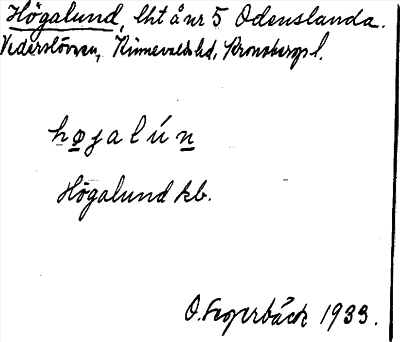 Högalund, lht å nr 5 Odenslanda.
Vederslövssn, Kinnevalds hd, Kronobergs l.
højalún
Högalund kb.
O. Fagerbäck 1933.